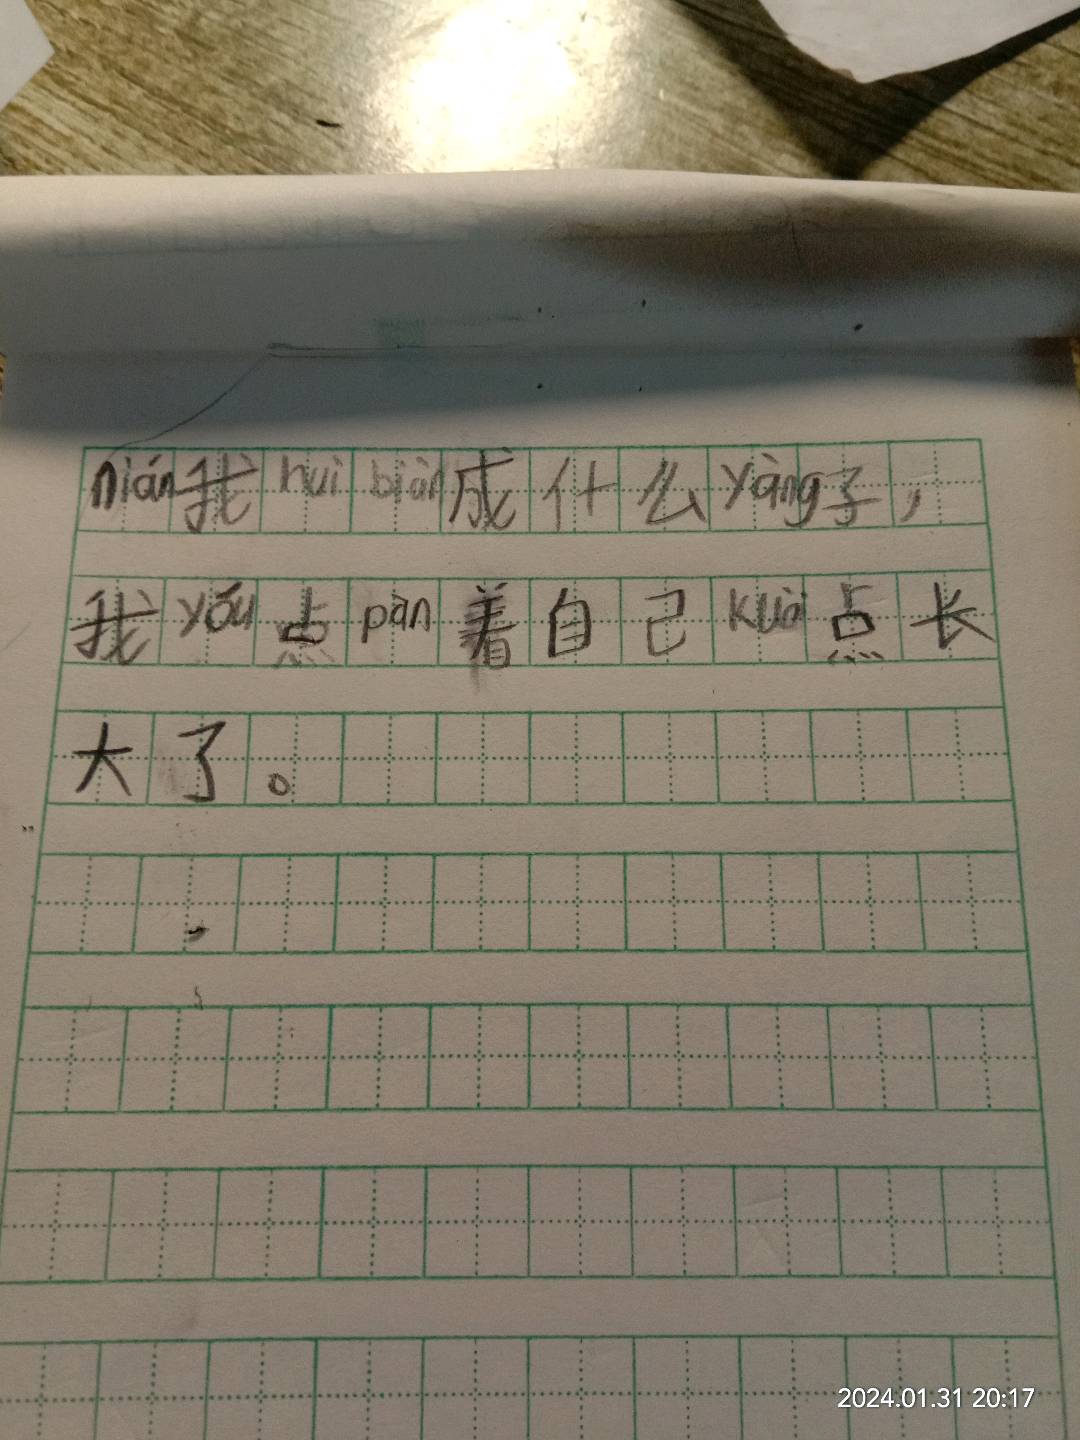 nián我huì biàn成什么yàng子，
我yǒu点pàn着自己kuài点长
大了。
2024.01.31 20:17